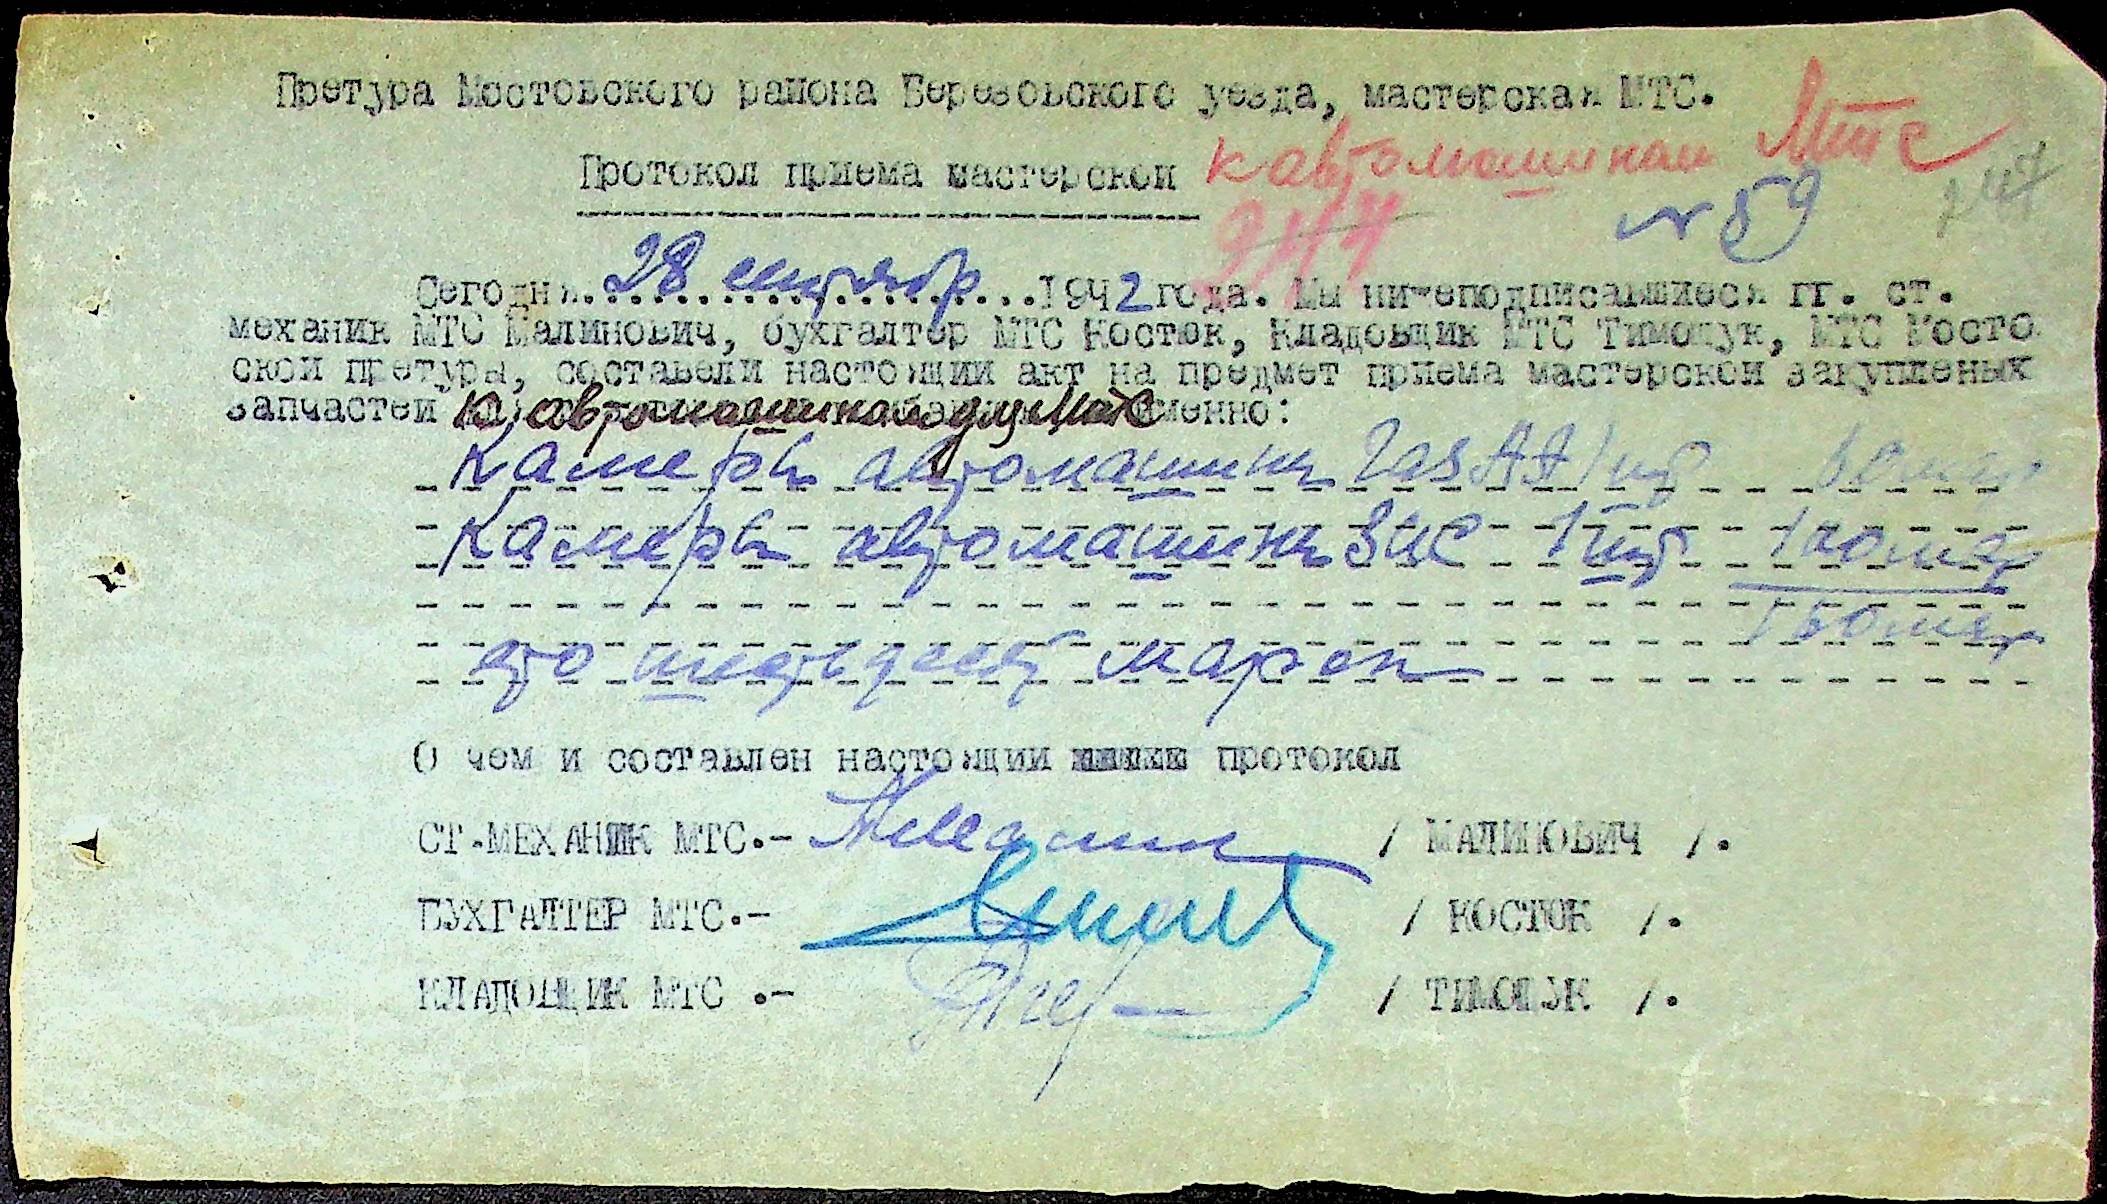 Претура Мостовского района Березовского уезда, мастерская МТС.
Протокол приема мастерской к автомашинам МТС
244 № 59 247
Сегодня..28 сентябр...1942 года. Мы нижеподписавшиеся гг. ст.
механик МТС Малинович, бухгалтер МТС Костюк, Кладовщик МТС Тимощук, МТС Мосто
ской претуры, составели настоящий акт на предмет приема мастерской закупленых
запчастей к автомашинам для МТС именно:
Камеры автомашины Газ АА 1 шт 60 мар
Камеры автомашины Зис 1 шт 100 мар
160 мар
сто шестьдесят марок
О чем и составлен настоящий протокол
СТ.МЕХАНИК МТС.- / МАЛИНОВИЧ /.
БУХГАЛТЕР МТС.- / КОСТЮК /.
КЛАДОВЩИК МТС .- / ТИМОЩУК /.